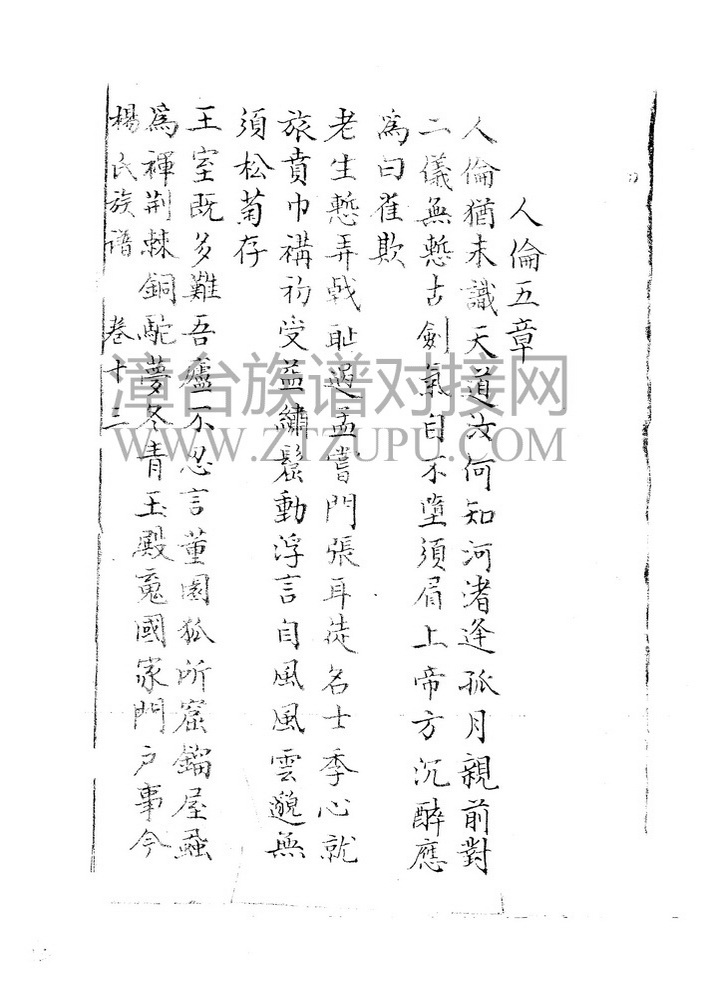 人倫五章
人倫猶未識天道汝何知河渚逢孤月親前對
二儀無慙古劍氣自不墮須眉上帝方沉醉應
為曰萑欺
老生慙弄戟恥遇孟嘗門張耳徒名士季心就
旅賁巾褠初受益繡鬉動浮言自風風雲邈無
須松菊存
王室既多難吾廬不忍言董園狐所窟鎦屋蝨
為褌荊棘銅駝夢冬青玉殿寃國家門戶事今
楊氏族譜 卷十二
漳台族谱对接网
WWW.ZTZUPU.COM